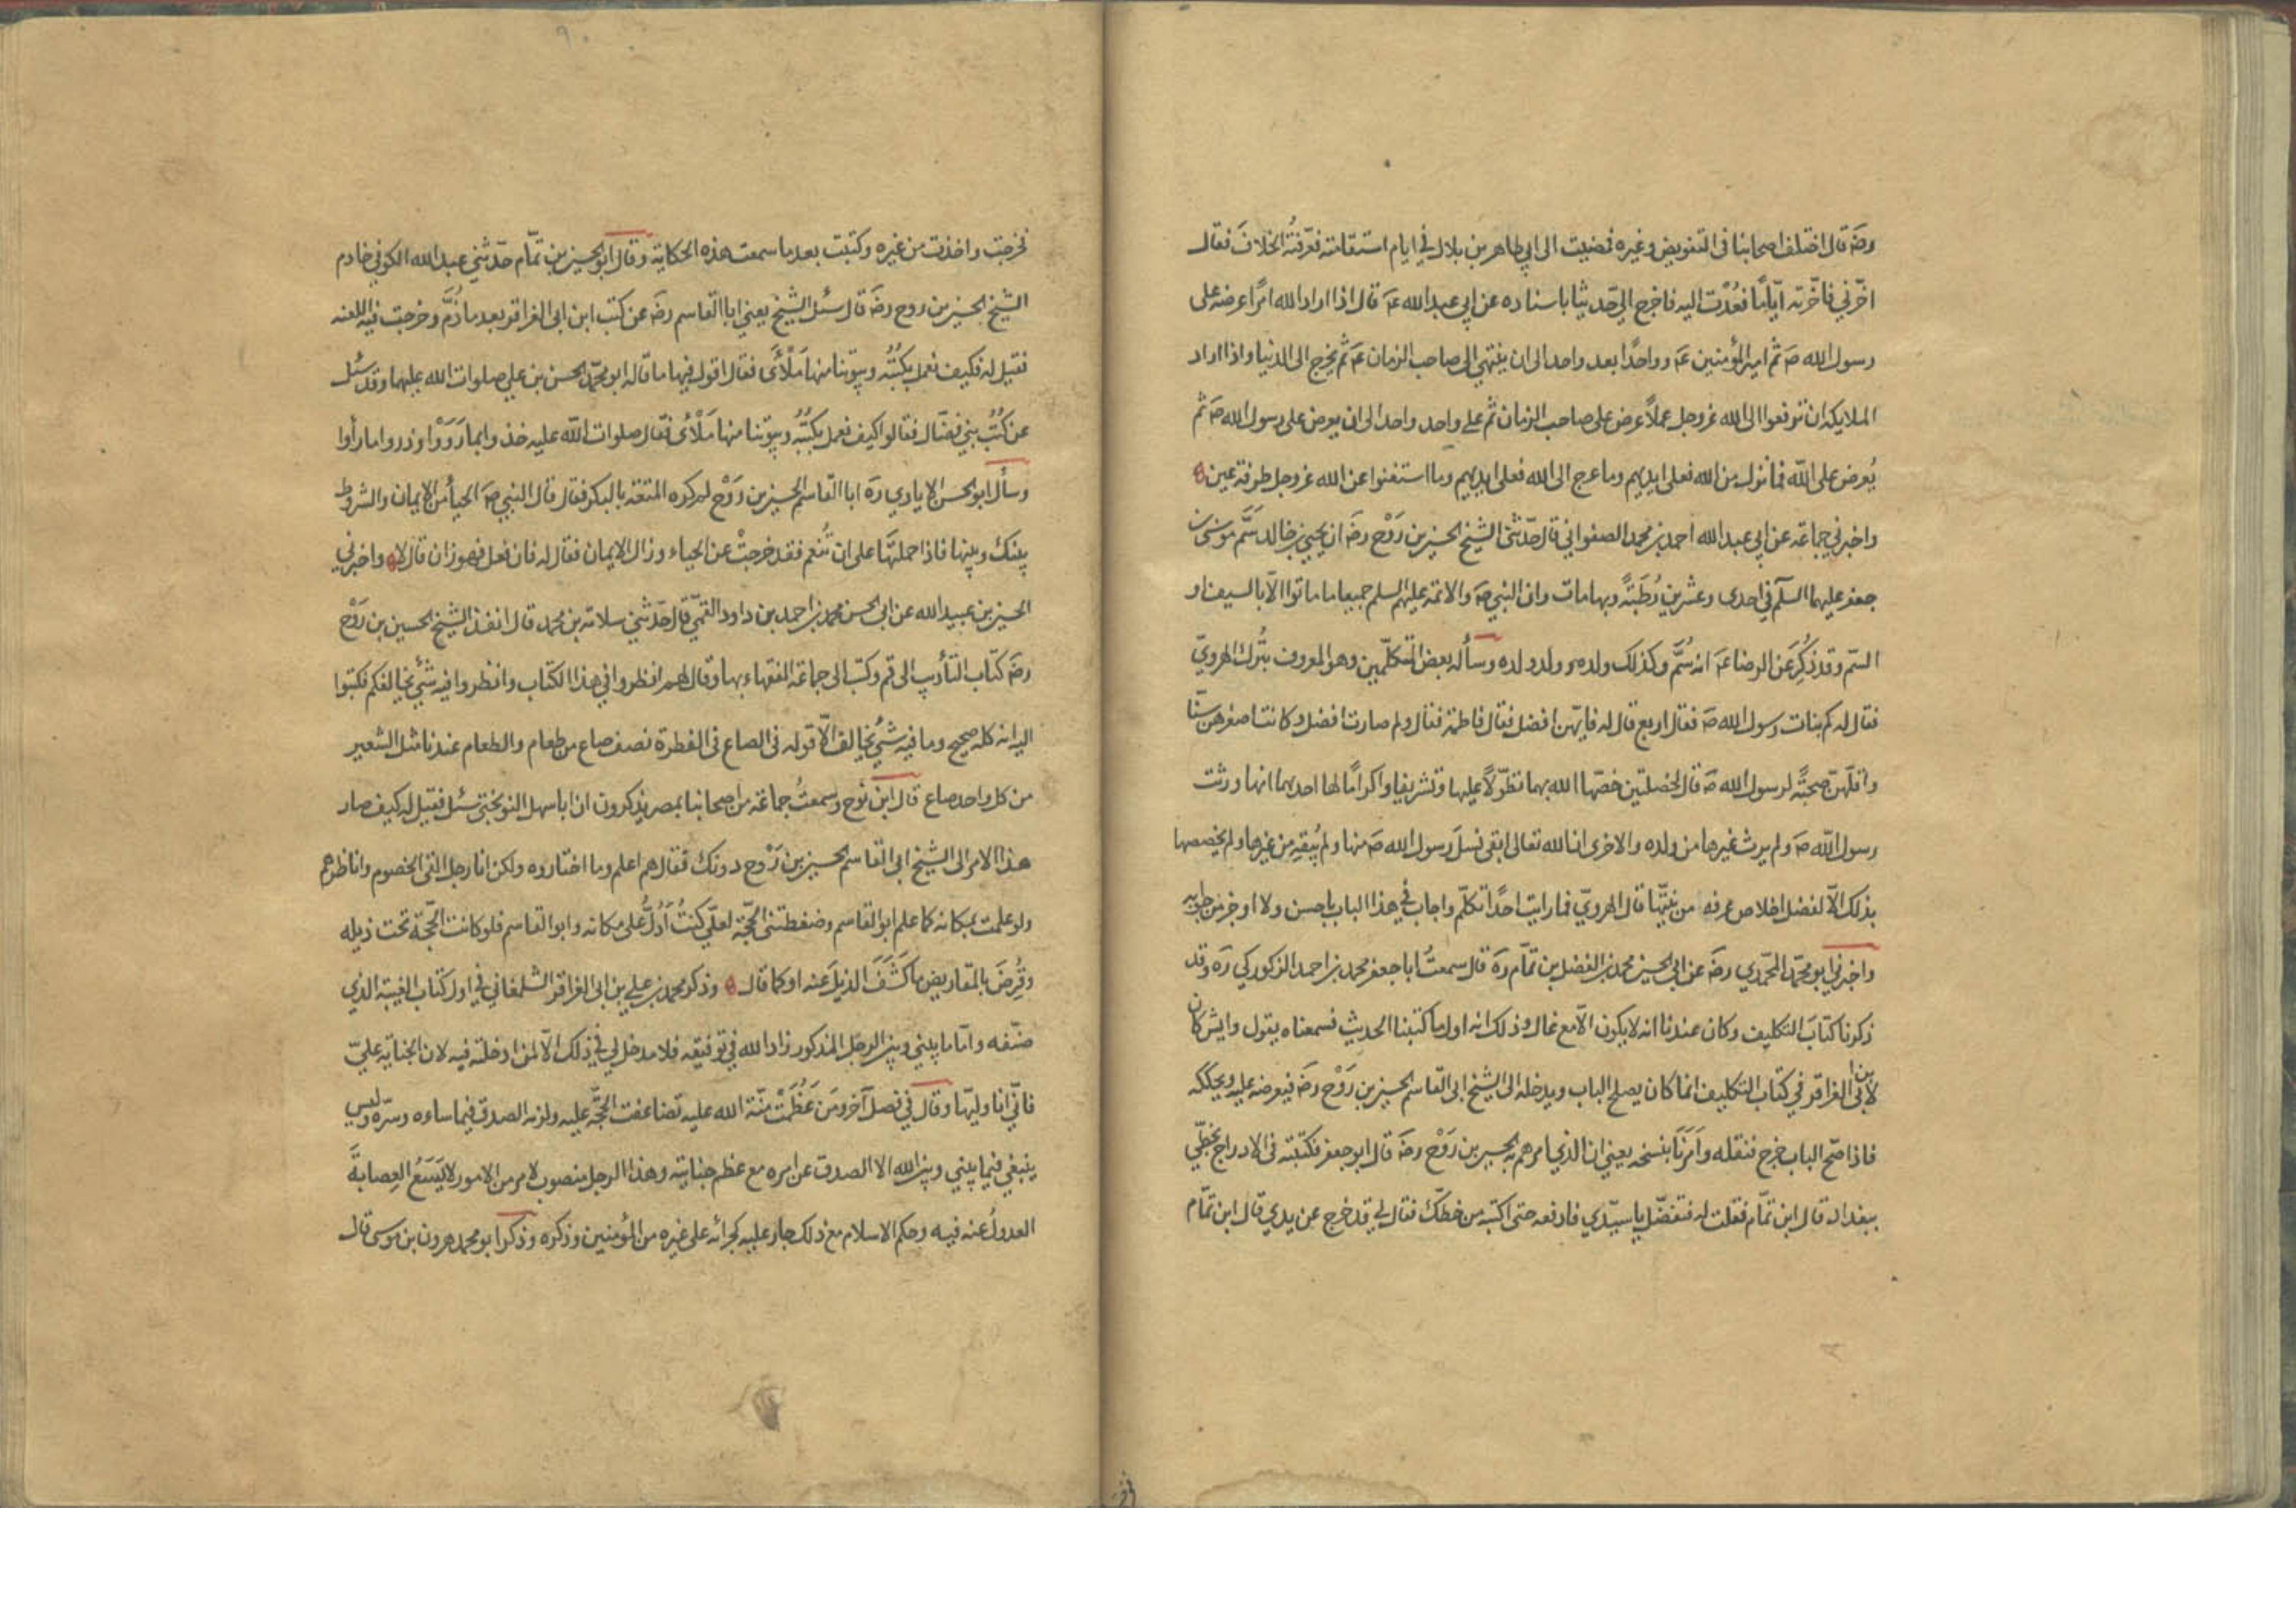 رضَ قال اختلف اصحابنا في التفويض وغيره فمضيت الى ابي طاهر بن بلال في ايام استقامته فعرّفتُه الخلافَ فقال
اخّرني فاخّرته ايّامًا فعُدْت اليه فاخرج اليّ حديثا باسناده عن ابي عبد الله عَ قال اذا اراد الله امرًا عرضه على
رسول الله صَ ثم امير المؤمنين عَ وواحدًا بعد واحد الى ان ينتهي الى صاحب الزمان عَ ثم يخرج الى الدنيا واذا اراد
الملايكه ان ترفعوا الى الله عز وجل عملاً عرض على صاحب الزمان ثم على واحد واحد الى ان يعرض على رسول الله صَ ثم
يُعرض على الله فما نزل من الله فعلى ايديهم وما عرج الى الله فعلى ايديهم وما استغنوا عن الله عز وجل طرفة عين
واخبرني جماعة عن ابي عبد الله احمد بن محمد الصفواني قال حدّثنى الشيخ الحسين بن رَوْح رضَ ان يحيى بن خالد سَمَّ موسى بن
جعفر عليهما السلم في احدى وعشرين رُطَبَةً وبها مات وان النبي صَ والائمة عليهم السلم جميعا ما ماتوا الّا بالسيف او
السّم وقد ذُكِرَ عَن الرضا عَ انه سُمَّ وكذلك ولده وولد ولده وسأله بعض المتكلّمين وهو المعروف بتُرك الهرويّ
فقال له كم بنات رسول الله صَ فقال اربع قال له فايّهن افضل فقال فاطمة فقال ولم صارت افضل وكانت اصغرهن سنّا
واقلّهن صحبةً لرسول الله صَ قال لخصلتين خصّها الله بهما تطوّلًا عليها وتشريفا واكرامًا لها احديهما انها ورثت
رسول الله صَ ولم يرث غيرها من ولده والاخرى ان الله تعالى ابقى نسل رسول الله صَ منها ولم يُبقِه من غيرها ولم يخصصها
بذلك الّا لفضل اخلاص عرفه من نيّتها قال الهرويّ فما رايت احدًا تكلّم واجاب في هذا الباب باحسن ولا اوجز من جوابه
واخبرني ابو محمّد المحمّدي رضَ عن ابي الحسين محمد بن الفضل بن تمّام رَه قال سمعتُ ابا جعفر محمد بن احمد الزكوزكي رَه وقد
ذكرنا كتابَ التكليف وكان عندنا انه لا يكون الّا مع غال وذلك انه اول ما كتبنا الحديث فسمعناه يقول وايش كان
لابن ابي العزاقر في كتاب التكليف انما كان يصلح الباب ويدخله الى الشيخ ابي القاسم الحسين بن رَوْح رضَ فيعرضه عليه ويحككه
فاذا صحّ الباب خرج فنقله وأمَرَنا بنسخه يعني ان الذي امرهم به الحسين بن رَوْح رضَ قال ابو جعفر فكتبته في الادراج بخطّي
ببغداد قال ابن تمّام فقلت له فتفضّل يا سيّدي فادفعه حتى اكتبه من خطّك فقال لي قد خرج عن يدي قال ابن تمّام
٩٠
فخرجت واخذت من غيره وكتبت بعد ما سمعت هذه الحكاية وقال ابو الحسين بن تمّام حدّثني عبد الله الكوفي خادم
الشيخ الحسين بن روح رضَ قال سئل الشيخ يعني ابا القاسم رضَ عن كتب ابن ابي العزاقر بعد ما ذُمَّ وخرجت فيه اللعنه
فقيل له فكيف نعمل بكُتُبُه وبيوتنا منها مَلْأَى فقال اقول فيها ما قاله ابو محمّد الحسن بن علي صلوات الله عليهما وقد سئل
عن كُتُب بني فضّال فقالوا كيف نعمل بكُتُبِه وبيوتنا منها مَلْأى فقال صلوات الله عليه خذوا بما رَوَوْا وذروا ما رأوا
وسأل ابو الحسن الايادي رَه ابا القاسم الحسين بن رَوْح لم كره المتعة بالبكر فقال قال النبي صَ الحيأ من الايمان والشروط
بينك وبينها فاذا حملتَها على ان تُنعم فقد خرجتْ عن الحياء وزال الايمان فقال له فان فعل فهو زان قال لا واخبرني
الحسين بن عبيد الله عن ابي الحسن محمد بن احمد بن داود القمّي قال حدّثني سلامة بن محمد قال انفذ الشيخ الحسين بن رَوْح
رضَ كتاب التأدب الى قم وكتب الى جماعة الفقهاء بها وقال لهم انظروا في هذا الكتاب وانظروا فيه شئ يخالفكم فكتبوا
اليه انه كله صحيح وما فيه شئ يخالف الّا قوله في الصاع في الفطرة نصف صاع من طعام والطعام عندنا مثل الشعير
من كل واحد صاع قال ابن نوح وسمعتُ جماعة من اصحابنا بمصر يذكرون ان ابا سهل النوبختي سئل فقيل له كيف صار
هذا الامر الى الشيخ ابي القاسم الحسين بن رَوْح دونك فقال هم اعلم وما اختاروه ولكن انا رجل القى الخصوم واناظرهم
ولو علمت بمكانه كما علم ابو القاسم وضغطتنى الحجّة لعلّي كنتُ أدُلُّ على مكانه وابو القاسم فلو كانت الحجّة تحت ذيله
وقُرِضَ بالمقاريض ما كَشَفَ الذيلَ عنه او كما قال وذكر محمد بن علي بن ابي العزاقر الشلمغاني في اول كتاب الغيبة الذي
صنّفه وامّا ما بيني وبين الرجل المذكور زاد الله في توفيقه فلا مدخل لي في ذلك الّا لمن ادخلته فيه لان الجناية عليّ
فانّي انا وليّها وقال في فصل آخر ومَن عَظُمَتْ منّة الله عليه تضاعفت الحجّة عليه ولزمه الصدق فيما ساءه وسرّه وليس
ينبغي فيما بيني وبين الله الا الصدق عن امره مع عظم جنايته وهذا الرجل منصوب لامر من الامور لا يَسَعُ العِصابةَ
العدولُ عنه فيه وحكم الاسلام مع ذلك جار عليه كجرائه على غيره من المؤمنين وذكره وذكر ابو محمد هرون بن موسى قال